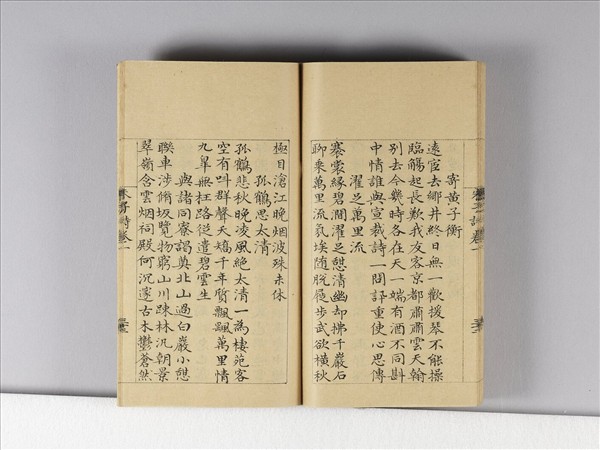 寄黃子衡
遠宦去鄉井終日無一歡援琴不能操
臨觴起長歎我友客京都肅肅雲天翰
別去今幾時各在天一端有酒不同斟
中情誰與宣裁詩一問訊重使心思傳
濯足萬里流
褰裳緣碧澗濯足憩清幽却拂千巖石
聊乘萬里流氛埃随脱屣步武欲橫秋
極目滄江晚烟波殊未休
孤鶴思太清
孤鶴悲秋晚凌風絶太清一為棲苑客
空有叫群聲夭矯千年質飄颻萬里情
九臯無枉路從遣碧雲生
與諸同寮謁奠北山過白巖小憩
聯車涉脩坂覽物窮山川疎林汎朝景
翠嶺含雲烟祠殿何沉邃古木鬱蒼然